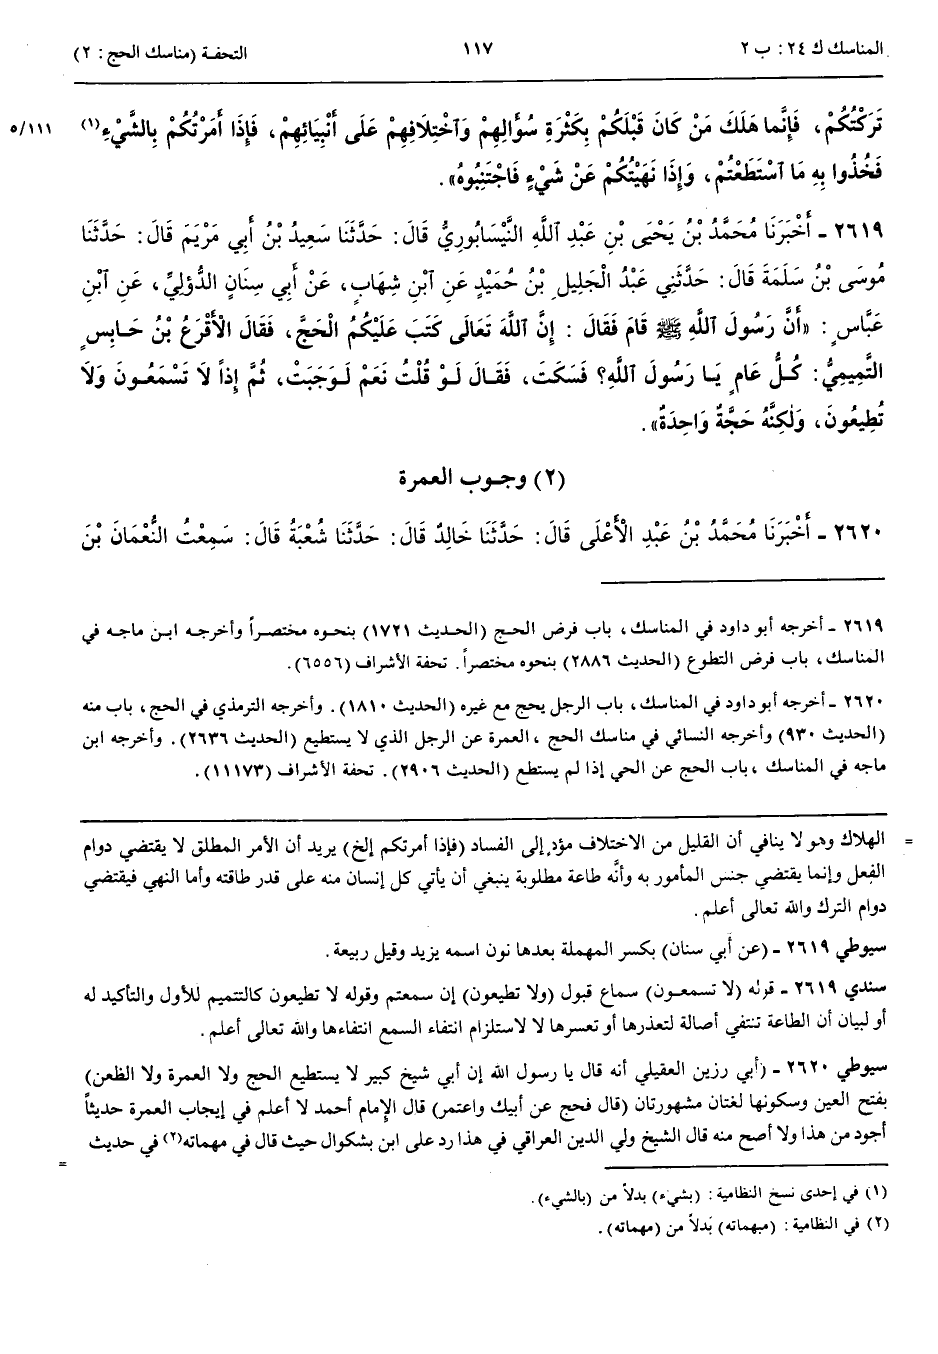 المناسك ك ٢٤ : ب ٢ ١١٧ التحفة (مناسك الحج : ٢)
تَرَكْتُكُمْ، فَإِنَّما هَلَكَ مَنْ كَانَ قَبْلَكُمْ بِكَثْرَةِ سُؤَالِهِمْ وَٱخْتِلَافِهِمْ عَلَى أَنْبِيَائِهِمْ، فَإِذَا أَمَرْتُكُمْ بِالشَّيْءِ(١) ٥/١١١
فَخُذُوا بِهِ مَا ٱسْتَطَعْتُمْ، وَإِذَا نَهَيْتُكُمْ عَنْ شَيْءٍ فَاجْتَنِبُوهُ».
٢٦١٩ ـ أَخْبَرَنَا مُحَمَّدُ بْنُ يَحْيَى بْنِ عَبْدِ ٱللَّهِ النَّيْسَابُورِيُّ قَالَ: حَدَّثَنَا سَعِيدُ بْنُ أَبِي مَرْيَمَ قَالَ: حَدَّثَنَا
مُوسَى بْنُ سَلَمَةَ قَالَ: حَدَّثَنِي عَبْدُ الْجَلِيلِ بْنُ حُمَيْدٍ عَنِ ٱبْنِ شِهَابٍ، عَنْ أَبِي سِنَانٍ الدُّؤَلِيِّ، عَنِ ٱبْنِ
عَبَّاسٍ: «أَنَّ رَسُولَ ٱللَّهِ ﷺ قَامَ فَقَالَ : إِنَّ ٱللَّهَ تَعَالَى كَتَبَ عَلَيْكُمُ الْحَجَّ، فَقَالَ الْأَقْرَعُ بْنُ حَابِسٍ
التَّمِيمِيُّ: كُلُّ عَامٍ يَا رَسُولَ ٱللَّهِ؟ فَسَكَتَ، فَقَالَ لَوْ قُلْتُ نَعَمْ لَوَجَبَتْ، ثُمَّ إِذاً لَا تَسْمَعُونَ وَلَا
تُطِيعُونَ، وَلٰكِنَّهُ حَجَّةٌ وَاحِدَةٌ».
(٢) وجوب العمرة
٢٦٢٠ ـ أَخْبَرَنَا مُحَمَّدُ بْنُ عَبْدِ الْأَعْلَى قَالَ: حَدَّثَنَا خَالِدٌ قَالَ: حَدَّثَنَا شُعْبَةُ قَالَ: سَمِعْتُ النُّعْمَانَ بْنَ
٢٦١٩ ـ أخرجه أبو داود في المناسك، باب فرض الحج (الحديث ١٧٢١) بنحوه مختصراً وأخرجه ابن ماجه في
المناسك، باب فرض التطوع (الحديث ٢٨٨٦) بنحوه مختصراً. تحفة الأشراف (٦٥٥٦).
٢٦٢٠ ـ أخرجه أبو داود في المناسك، باب الرجل يحج مع غيره (الحديث ١٨١٠). وأخرجه الترمذي في الحج، باب منه
(الحديث ٩٣٠) وأخرجه النسائي في مناسك الحج ، العمرة عن الرجل الذي لا يستطيع (الحديث ٢٦٣٦). وأخرجه ابن
ماجه في المناسك ، باب الحج عن الحي إذا لم يستطع (الحديث ٢٩٠٦). تحفة الأشراف (١١١٧٣).
= الهلاك وهو لا ينافي أن القليل من الاختلاف مؤد إلى الفساد (فإذا أمرتكم إلخ) يريد أن الأمر المطلق لا يقتضي دوام
الفعل وإنما يقتضي جنس المأمور به وأنَّه طاعة مطلوبة ينبغي أن يأتي كل إنسان منه على قدر طاقته وأما النهي فيقتضي
دوام الترك والله تعالى أعلم.
سيوطي ٢٦١٩ ـ (عن أبي سنان) بكسر المهملة بعدها نون اسمه يزيد وقيل ربيعة.
سندي ٢٦١٩ ـ قوله (لا تسمعون) سماع قبول (ولا تطيعون) إن سمعتم وقوله لا تطيعون كالتتميم للأول والتأكيد له
أو لبيان أن الطاعة تنتفي أصالة لتعذرها أو تعسرها لا لاستلزام انتفاء السمع انتفاءها والله تعالى أعلم.
سيوطي ٢٦٢٠ ـ (أبي رزين العقيلي أنه قال يا رسول الله إن أبي شيخ كبير لا يستطيع الحج ولا العمرة ولا الظعن)
بفتح العين وسكونها لغتان مشهورتان (قال فحج عن أبيك واعتمر) قال الإمام أحمد لا أعلم في إيجاب العمرة حديثاً
أجود من هذا ولا أصح منه قال الشيخ ولي الدين العراقي في هذا رد على ابن بشكوال حيث قال في مهماته(٢) في حديث =
(١) في إحدى نسخ النظامية : (بشيء) بدلاً من (بالشيء).
(٢) في النظامية : (مبهماته) بَدلاً من (مهماته).